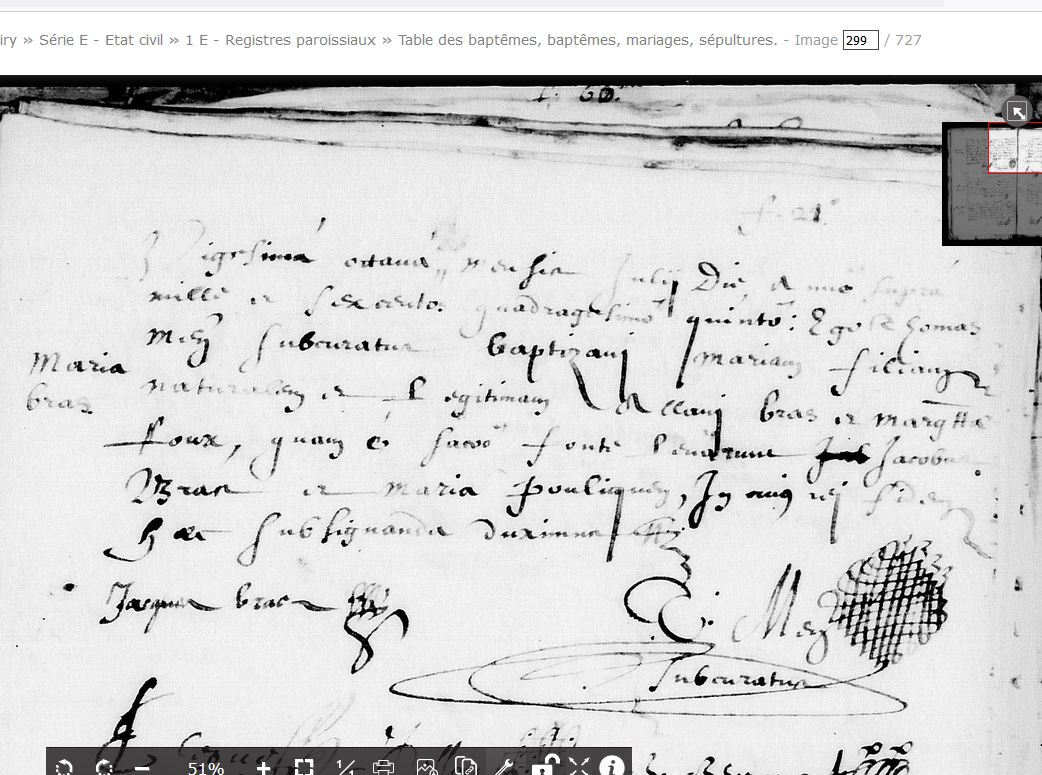 iry » Série E - Etat civil » 1 E - Registres paroissiaux » Table des baptêmes, baptêmes, mariages, sépultures. - Image 299 / 727
f. 60.
f. 21
Vigesima octava mensis Julij Die, anno supra
mille et sexcento quadragesimo quinto: Ego Thomas
Mez subcuratus baptizavj mariam filiam
Maria
bras
naturalem et Legitimam Allanj bras et margtta
foux, quam è sacro fonte levarunt Jacobus
Bras et maria Pouliquen, In cujus rej fidem
hæc subsignanda duximus
Jacques bras
T. Mez
subcuratus
51%